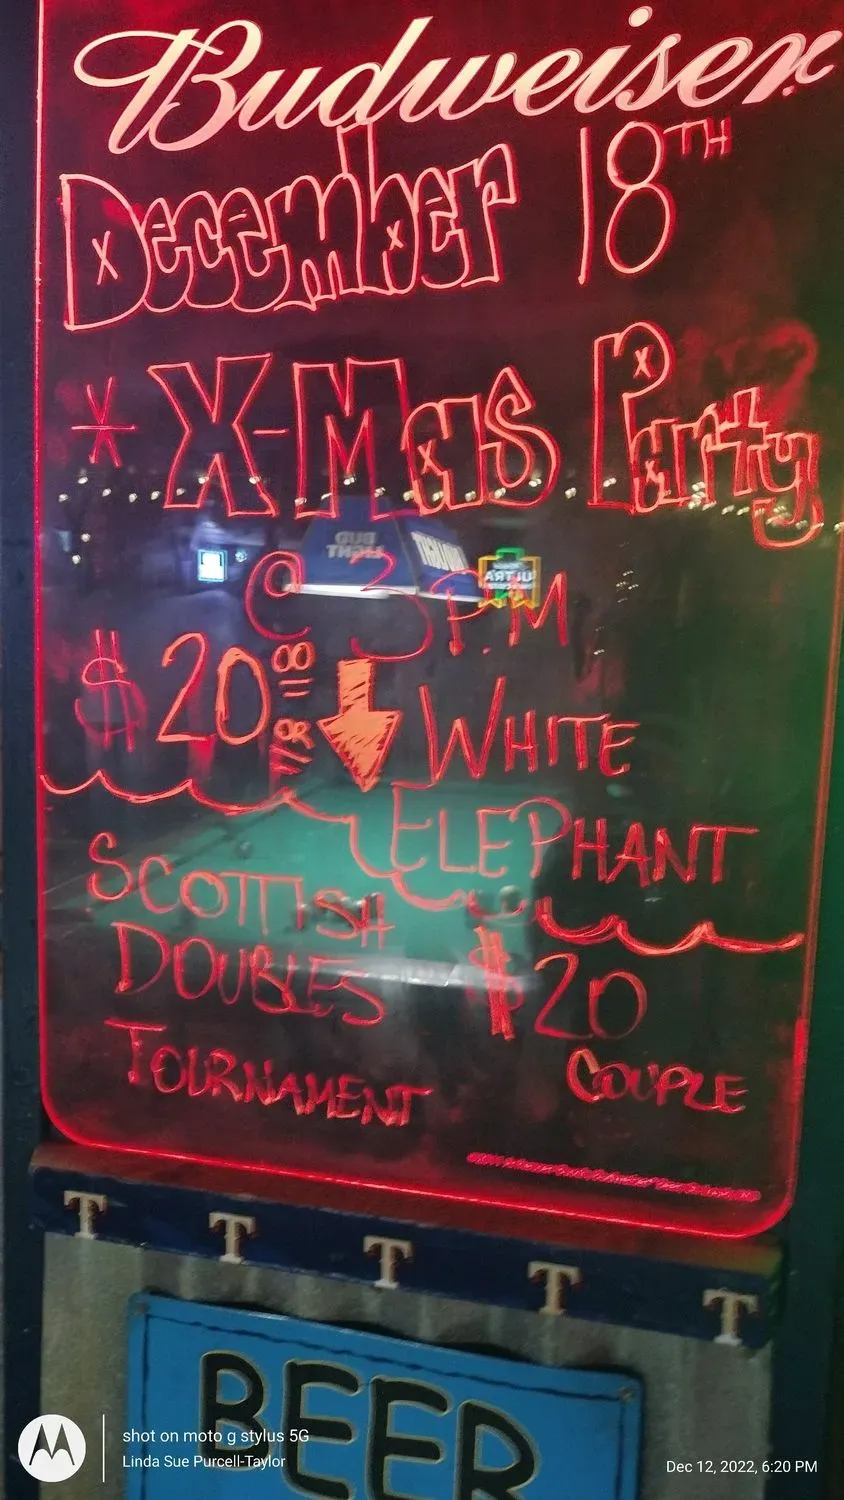 Budweiser
December 18TH
* X-Mas Party
@ 3 P.M
$20
WHITE
ELEPHANT
SCOTTISH
DOUBLES
TOURNAMENT
$20
COUPLE
BUD
LIGHT
ULTRA
T T T T T
BEER
shot on moto g stylus 5G
Linda Sue Purcell-Taylor
Dec 12, 2022, 6:20 PM